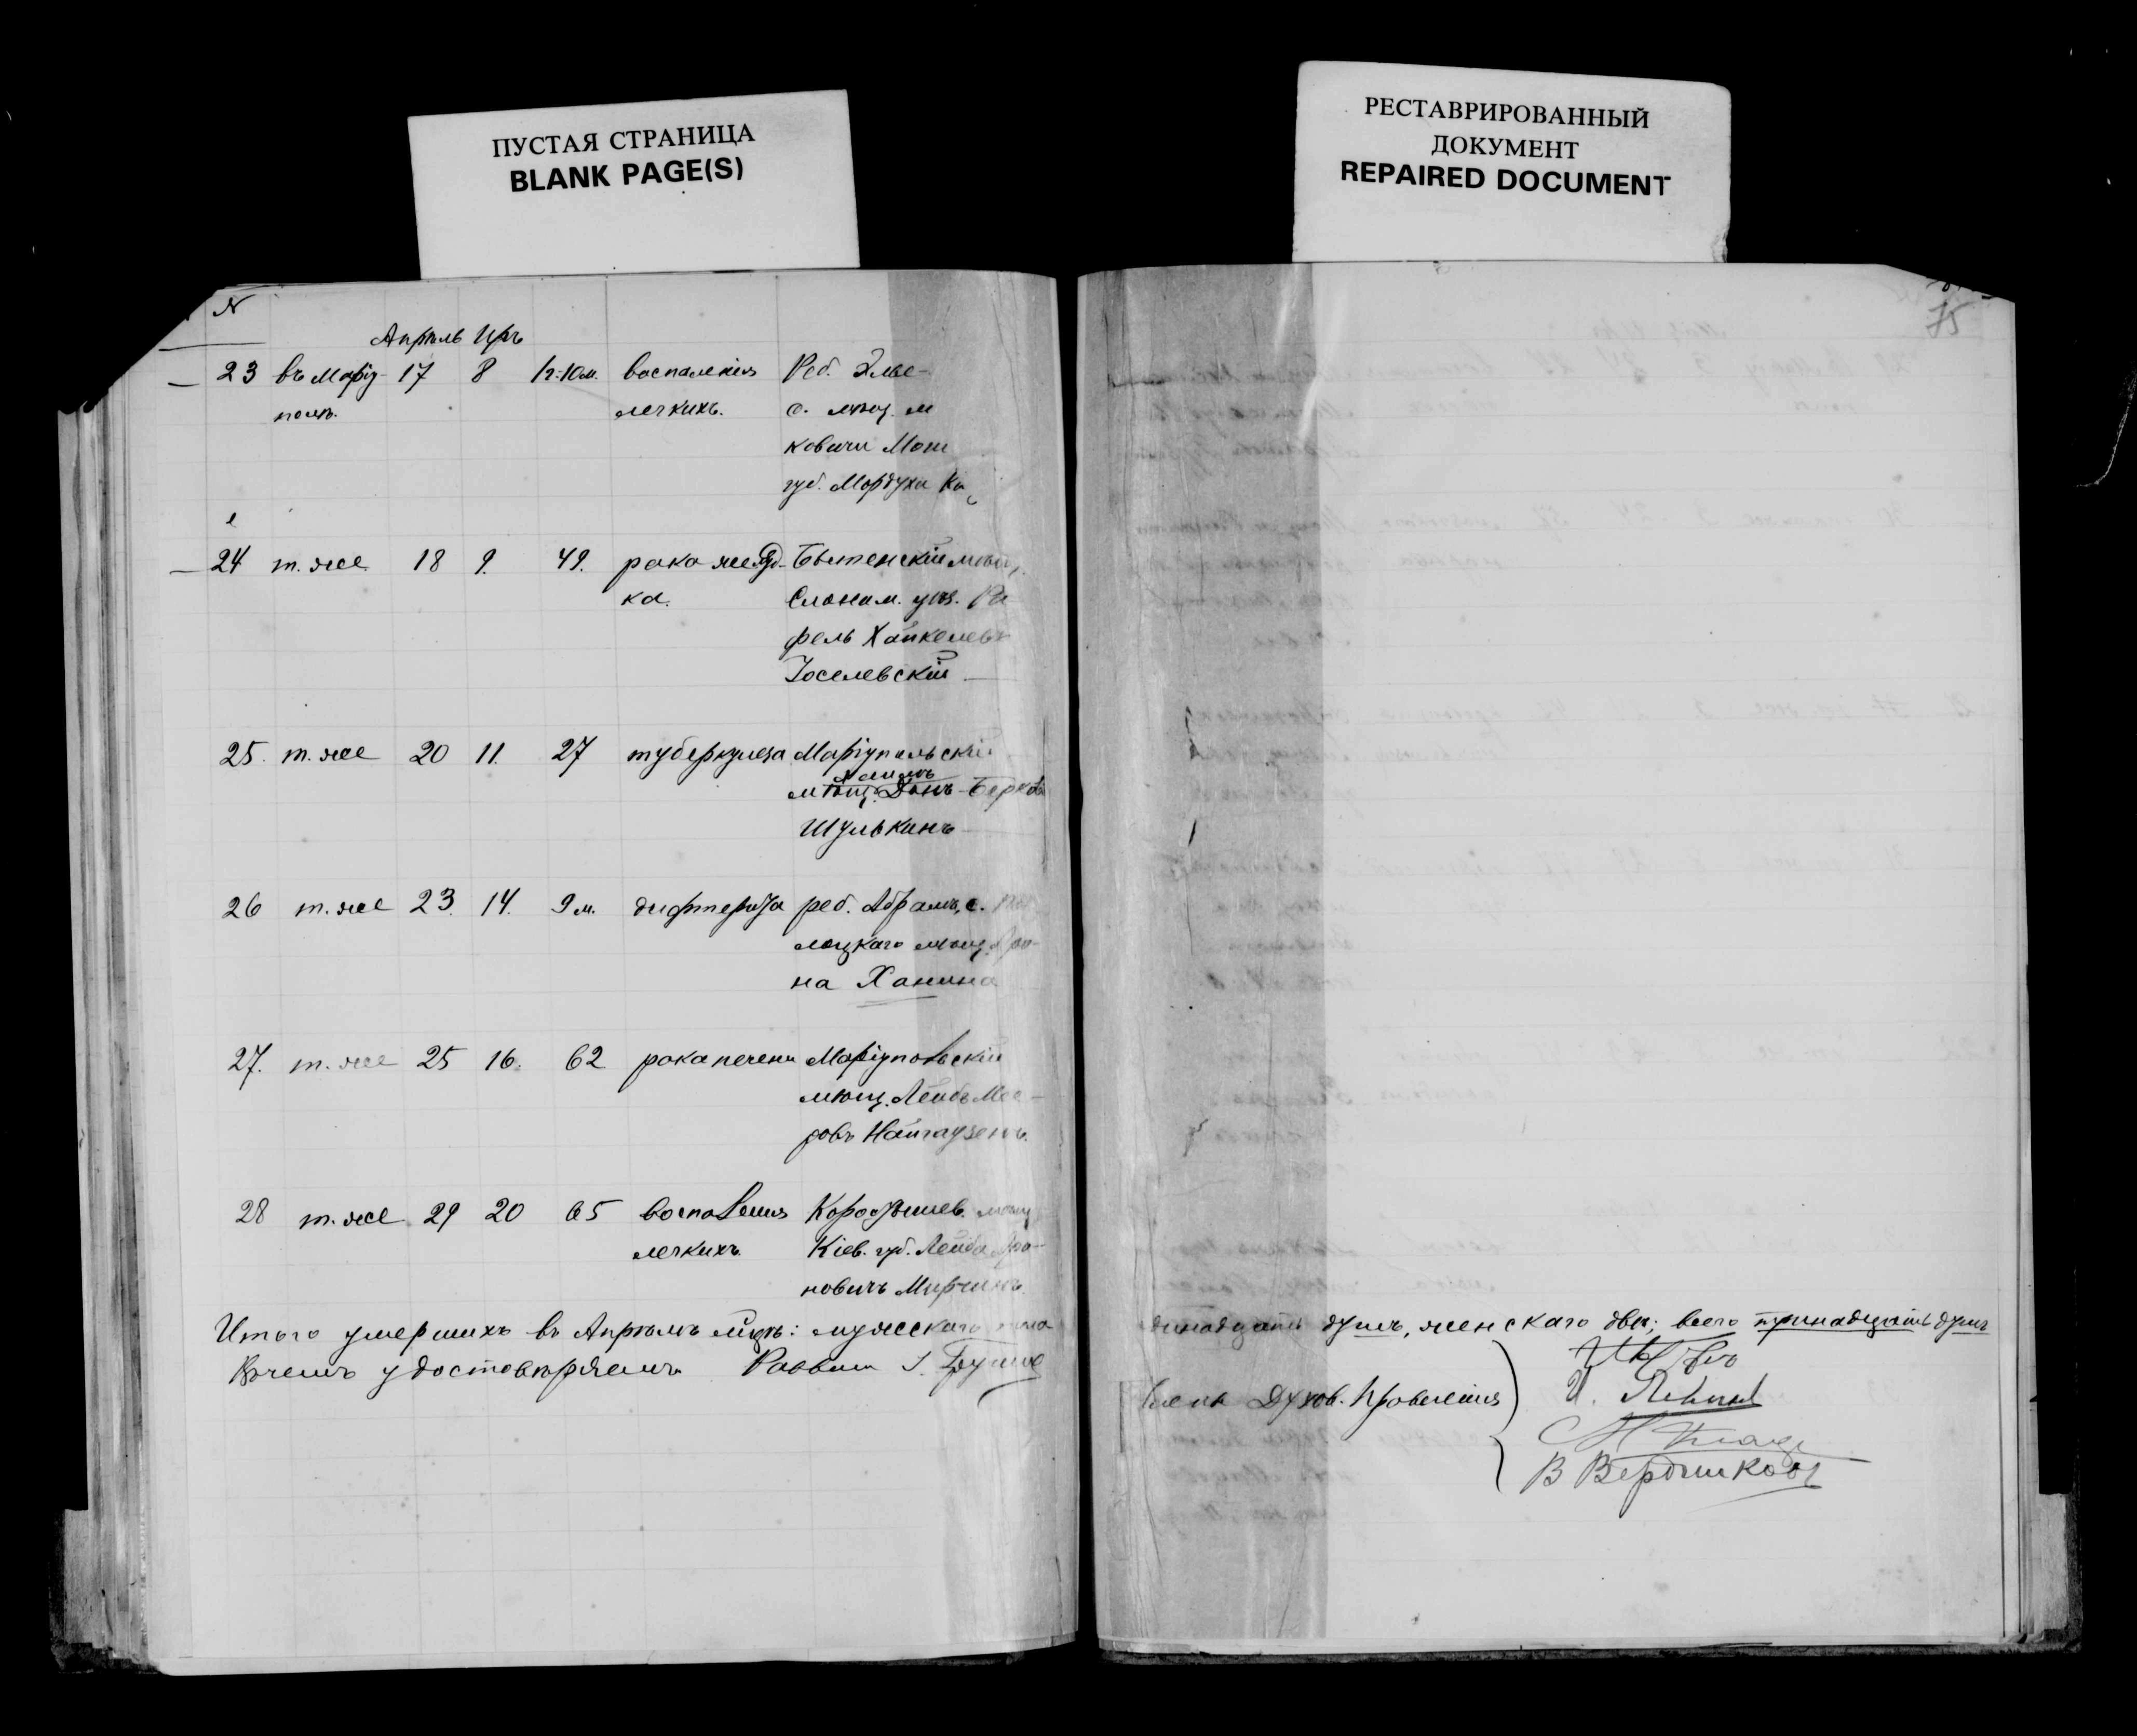 ПУСТАЯ СТРАНИЦА
BLANK PAGE(S)
РЕСТАВРИРОВАННЫЙ
ДОКУМЕНТ
REPAIRED DOCUMENT
N
75
Апрѣль Іяръ
23 въ Маріу- 17 8 1г.10м. воспаленія Реб. Элье-
полѣ. легкихъ. с. мѣщ. м
ковичи Мог
губ. Мордуха Ка
24 т. же 18 9. 49. рака желуд- Бытенскій мѣщ.
ка. Слоним. уѣз. Ра
фель Хайкелевъ
Іоселевскій
25. т. же 20 11. 27 туберкулеза Маріупольскій
Хаимъ
мѣщ. Берков
Шулькинъ
26 т. же 23. 14. 9 м. дифтерита реб. Абрамъ, с. По
лоцкаго мѣщ. Аро-
на Ханина
27. т. же 25 16. 62 рака печени Маріупольскій
мѣщ. Лейбъ Мее-
ровъ Найгаузенъ.
28 т. же 29 20 65 воспаленія Коростышев. мѣщ
легкихъ Кіев. губ. Лейба Аро-
новичъ Мирчинъ.
Итого умершихъ въ Апрѣлѣ м-цѣ: мужскаго пола
одинадцать душъ, женскаго двѣ; всего тринадцать душъ
Въ чемъ удостовѣряемъ Раввин
Члены Духов. Правленія
И.
В Бердниковъ